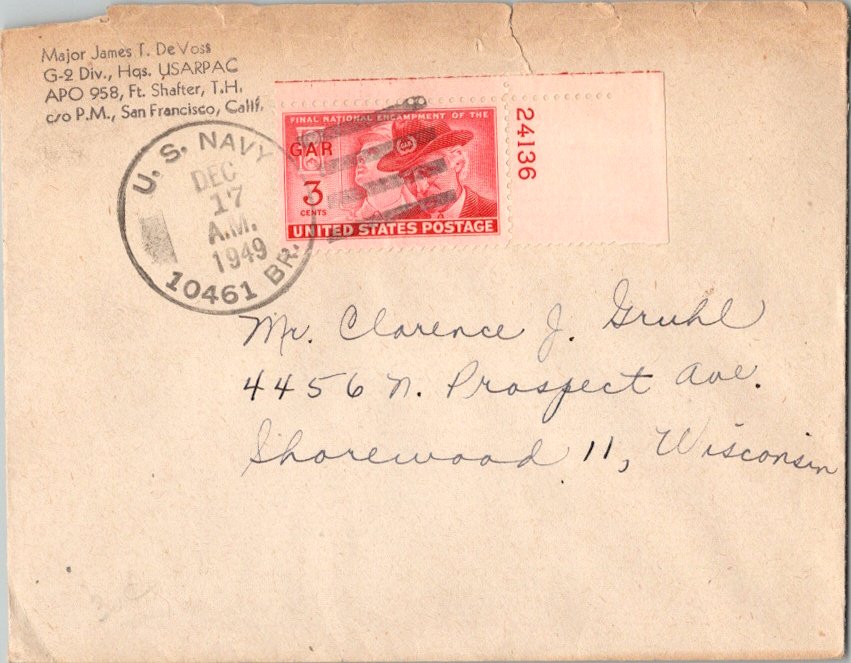 Major James T. DeVoss
G-2 Div., Hqs. USARPAC
APO 958, Ft. Shafter, T.H.
c/o P.M., San Francisco, Calif.
U. S. NAVY
DEC
17
A.M.
1949
10461 BR.
FINAL NATIONAL ENCAMPMENT OF THE
GAR
3
CENTS
UNITED STATES POSTAGE
24136
Mr. Clarence J. Gruhl
4456 N. Prospect Ave.
Shorewood 11, Wisconsin